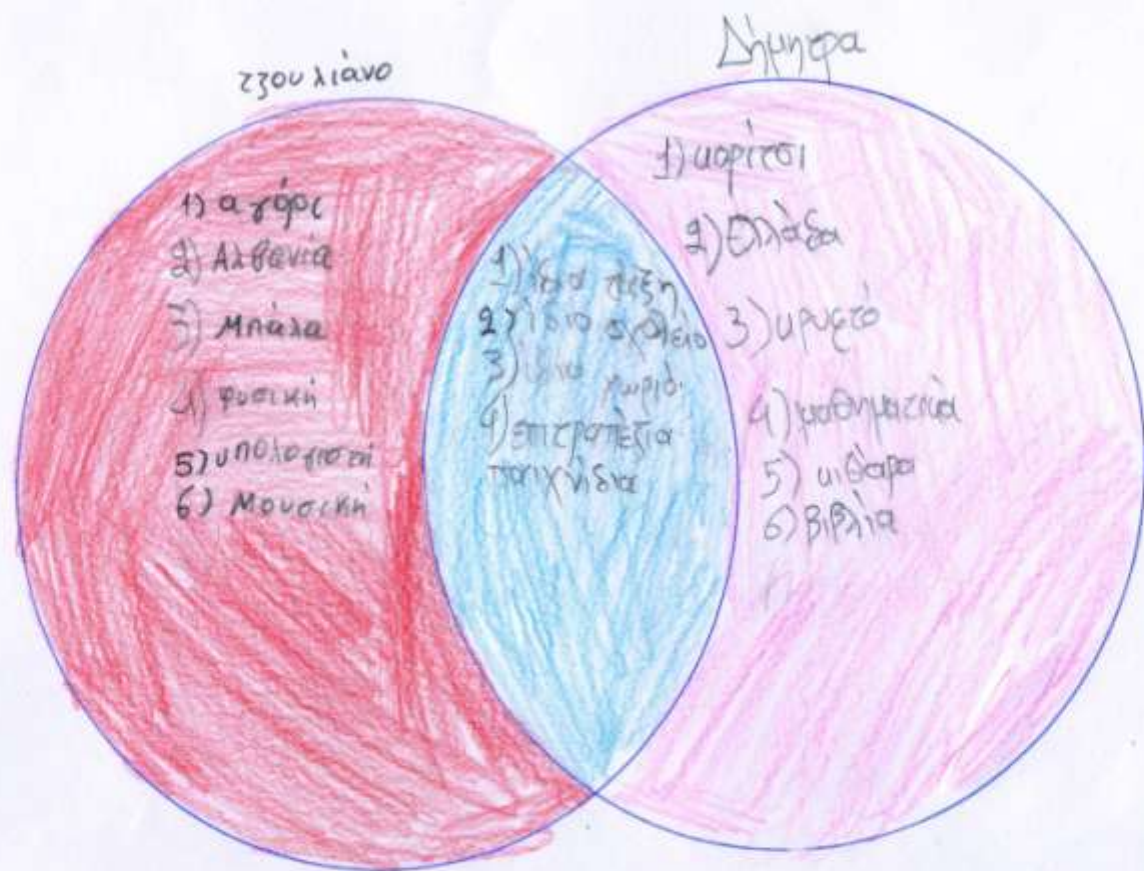 τζουλιάνο
1) αγόρι
2) Αλβανία
3) Μπάλα
4) φυσική
5) υπολογιστή
6) Μουσική
1) ίδια τάξη
2) ίδιο σχολείο
3) ίδιο χωριό
4) επιτραπέζια
παιχνίδια
Δήμητρα
1) κορίτσι
2) Ελλάδα
3) κρυφτό
4) μαθηματικά
5) κιθάρα
6) βιβλία